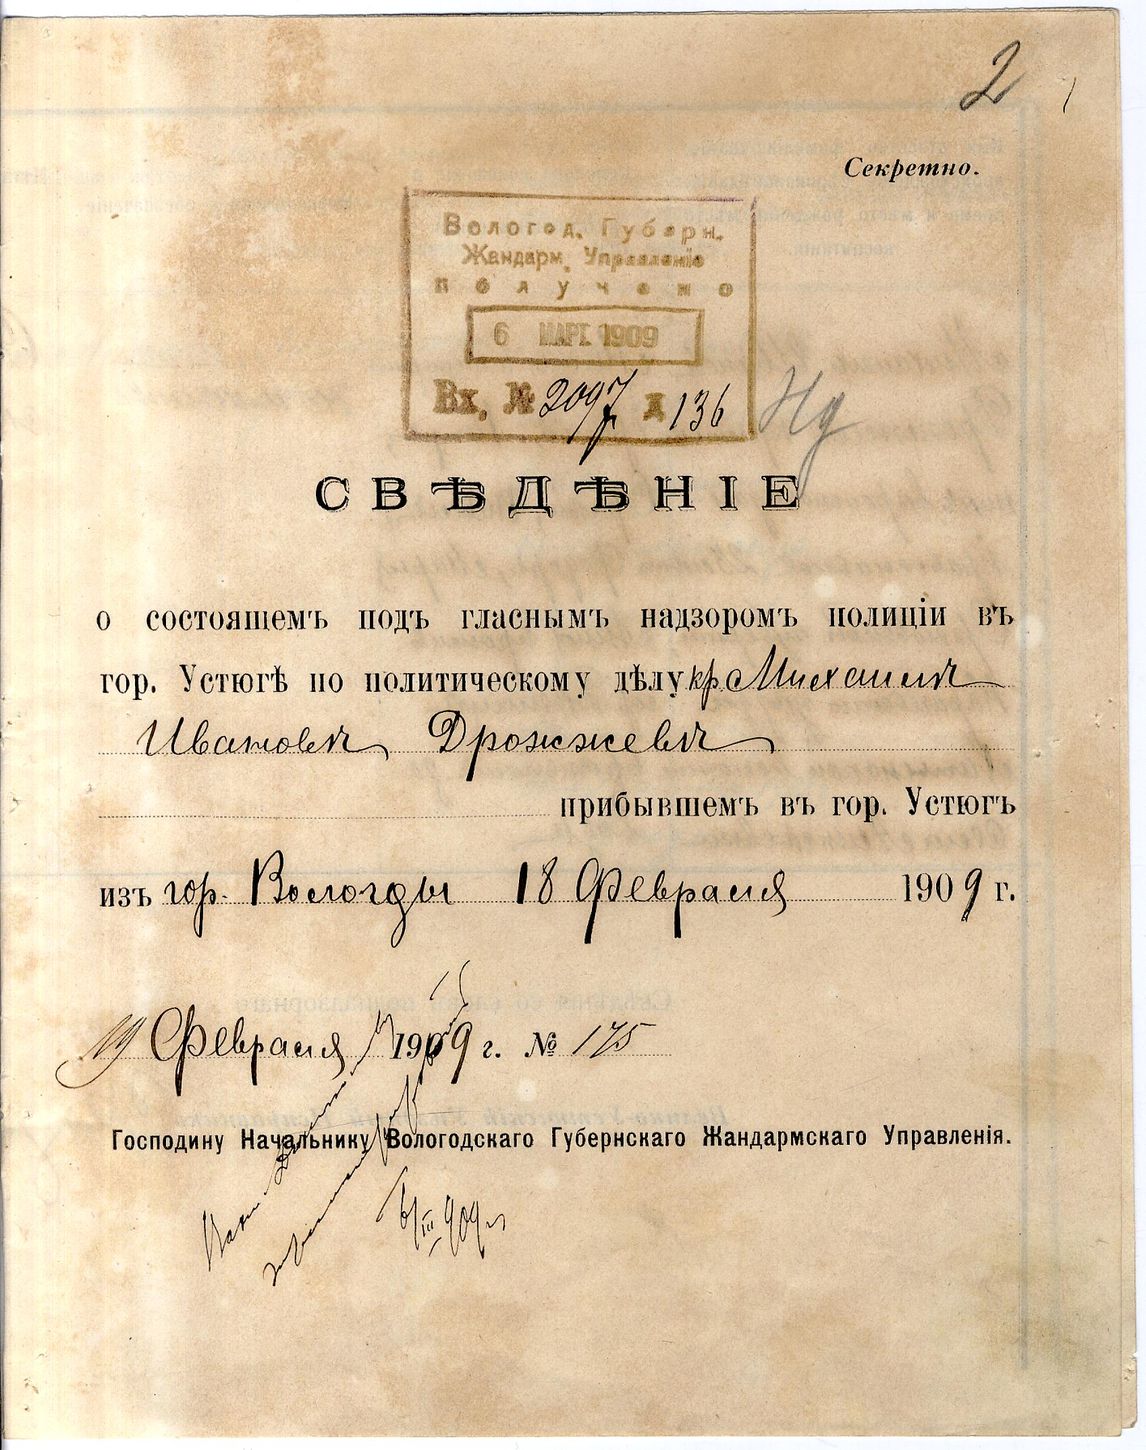 2
Секретно.
Вологод. Губерн.
Жандарм. Управленіе
получено
6 МАРТ. 1909
Вх. № 2097 д 136
СВѢДѢНІЕ
о состоящемъ подъ гласнымъ надзоромъ полиціи въ
гор. Устюгѣ по политическому дѣлу кр. Михаилѣ
Ивановѣ Дрожжевѣ
прибывшемъ въ гор. Устюгъ
изъ гор. Вологды 18 Февраля 1909 г.
19 Февраля 1909 г. № 175
Господину Начальнику Вологодскаго Губернскаго Жандармскаго Управленія.
6/III 909 г.